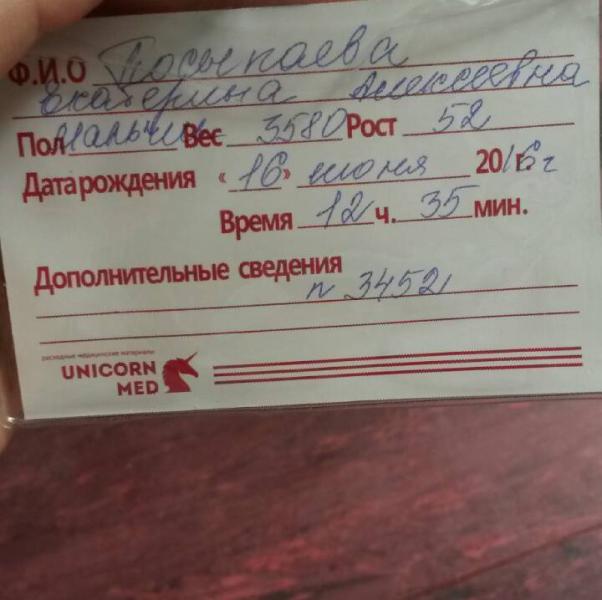 Ф.И.О Посыпаева
Екатерина Алексеевна
Пол Мальчик Вес 3580 Рост 52
Дата рождения «16» июня 2016 г
Время 12 ч. 35 мин.
Дополнительные сведения
п 34521
расходные медицинские материалы
UNICORN
MED